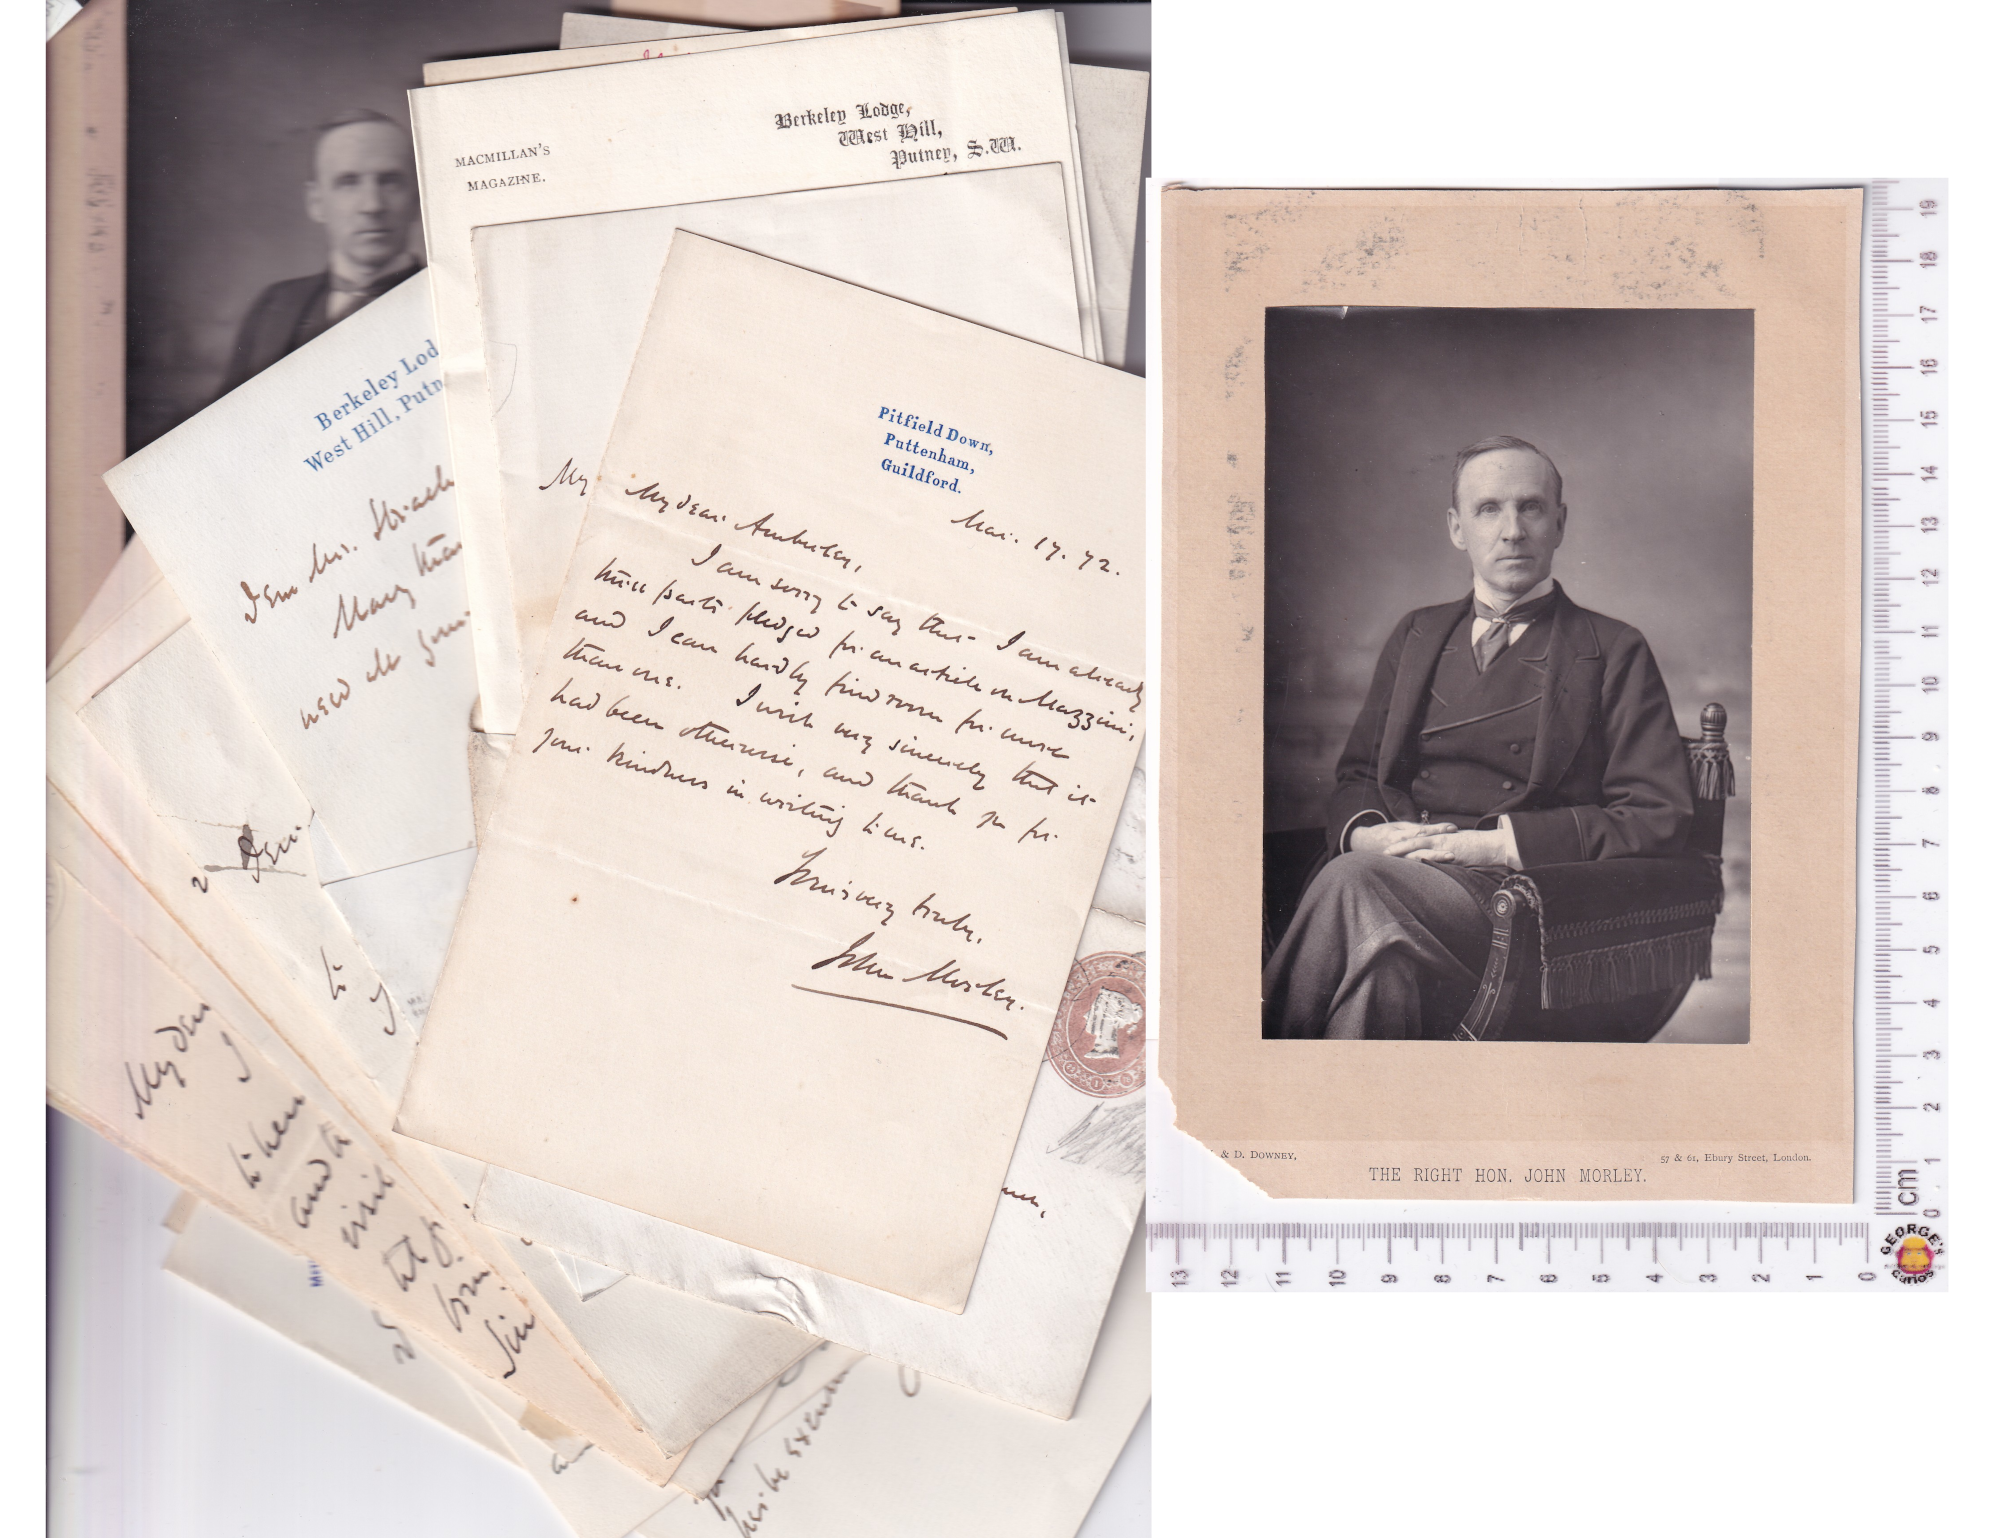 MACMILLAN'S
MAGAZINE.
Berkeley Lodge,
West Hill,
Putney, S.W.
Berkeley Lod
West Hill, Putn
Dear Mr. Strach
Many than
need de
My
Pitfield Down,
Puttenham,
Guildford.
Mar. 17. 72.
My dear Amberley,
I am sorry to say that I am already
three parts pledged for an article on Mazzini,
and I can hardly find room for more
than one. I wish very sincerely that it
had been otherwise, and thank you for
your kindness in writing to me.
Yours very truly,
John Morley.
Dear
2
to
I
My dear
I
to hear
and to
visit
& D. DOWNEY,
57 & 61, Ebury Street, London.
THE RIGHT HON. JOHN MORLEY.
19
18
17
16
15
14
13
12
11
10
9
8
7
6
5
4
3
2
1
0
cm
13
12
11
10
9
8
7
6
5
4
3
2
1
0
GEORGE'S
curios